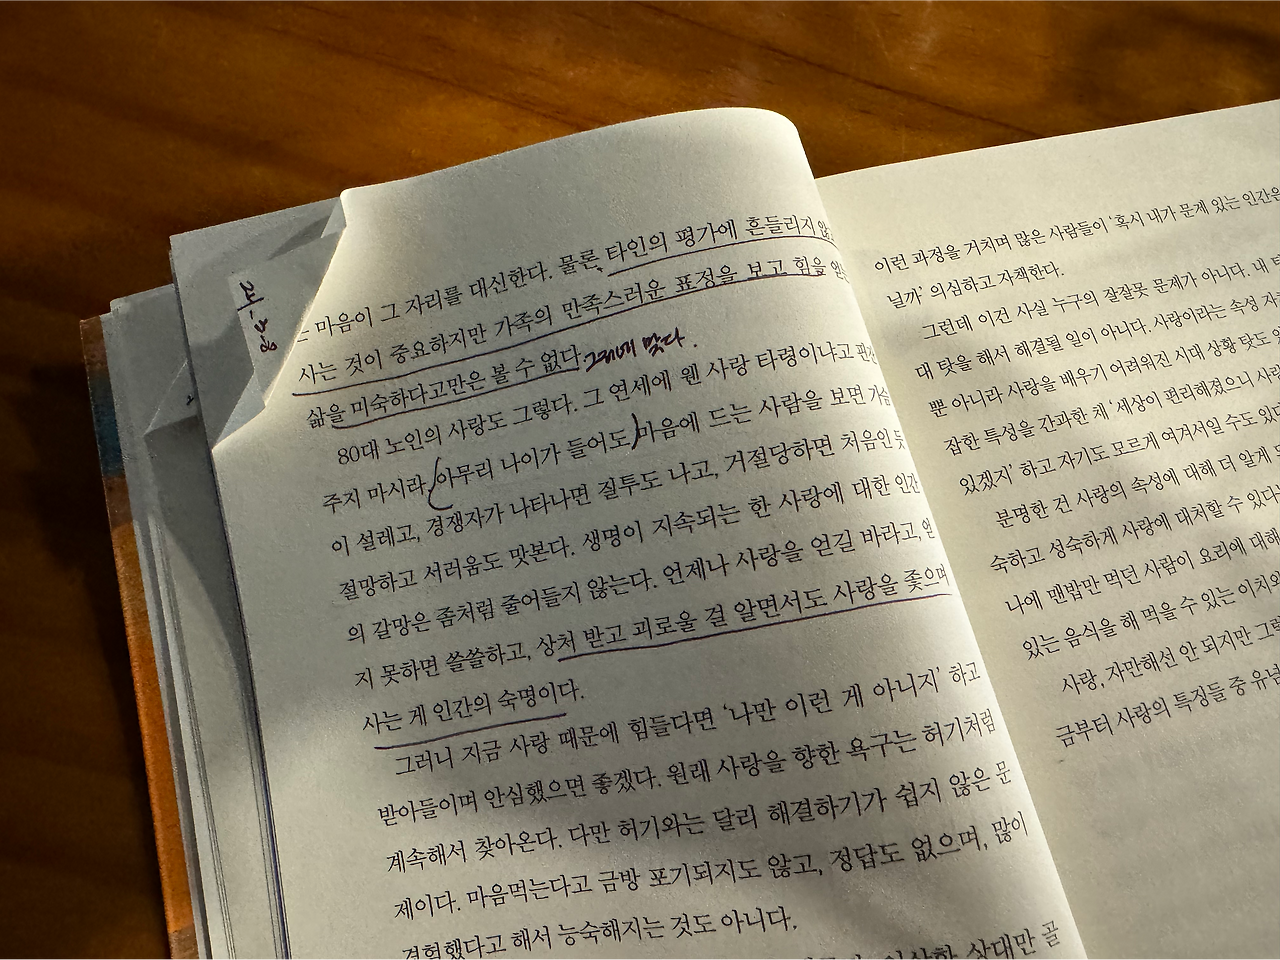 마음이 그 자리를 대신한다. 물론, 타인의 평가에 흔들리지
사는 것이 중요하지만 가족의 만족스러운 표정을 보고 힘을
삶을 미숙하다고만은 볼 수 없다. 그러네 맞다.
80대 노인의 사랑도 그렇다. 그 연세에 웬 사랑 타령이냐고
주지 마시라. (아무리 나이가 들어도) 마음에 드는 사람을 보면 가슴
이 설레고, 경쟁자가 나타나면 질투도 나고, 거절당하면 처음인 듯
절망하고 서러움도 맛본다. 생명이 지속되는 한 사랑에 대한 인간
의 갈망은 좀처럼 줄어들지 않는다. 언제나 사랑을 얻길 바라고, 얻
지 못하면 쓸쓸하고, 상처 받고 괴로울 걸 알면서도 사랑을 좇으며
사는 게 인간의 숙명이다.
그러니 지금 사랑 때문에 힘들다면 ‘나만 이런 게 아니지’ 하고
받아들이며 안심했으면 좋겠다. 원래 사랑을 향한 욕구는 허기처럼
계속해서 찾아온다. 다만 허기와는 달리 해결하기가 쉽지 않은 문
제이다. 마음먹는다고 금방 포기되지도 않고, 정답도 없으며, 많이
경험했다고 해서 능숙해지는 것도 아니다.
이상한 상대만 골
이런 과정을 거치며 많은 사람들이 ‘혹시 내가 문제 있는 인간은
닐까’ 의심하고 자책한다.
그런데 이건 사실 누구의 잘잘못 문제가 아니다. 내 탓
대 탓을 해서 해결될 일이 아니다. 사랑이라는 속성 자
뿐 아니라 사랑을 배우기 어려워진 시대 상황 탓도
잡한 특성을 간과한 채 ‘세상이 편리해졌으니 사랑
있겠지’ 하고 자기도 모르게 여겨서일 수도 있
분명한 건 사랑의 속성에 대해 더 알게
숙하고 성숙하게 사랑에 대처할 수 있다
나에 맨밥만 먹던 사람이 요리에 대해
있는 음식을 해 먹을 수 있는 이치와
사랑, 자만해선 안 되지만 그
금부터 사랑의 특징들 중 유념